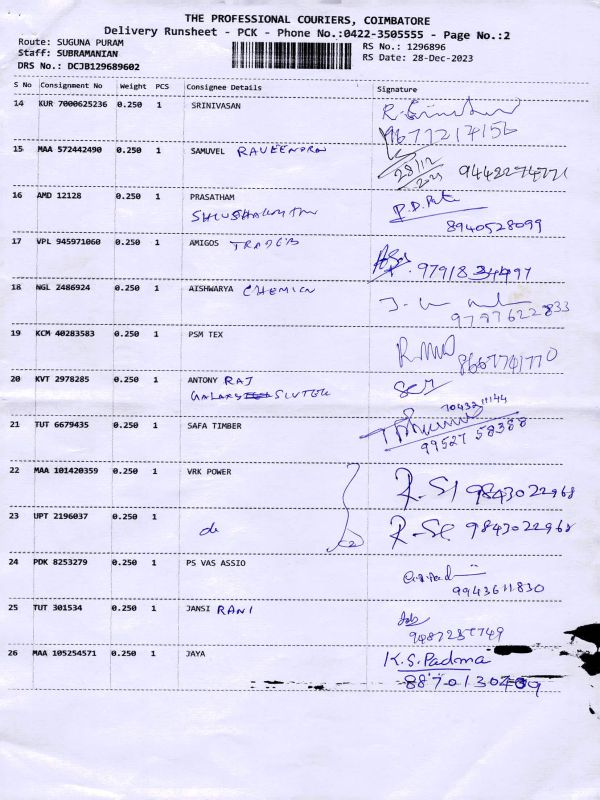 THE PROFESSIONAL COURIERS, COIMBATORE
Delivery Runsheet - PCK - Phone No.:0422-3505555 - Page No.:2
Route: SUGUNA PURAM
RS No.: 1296896
Staff: SUBRAMANIAN
RS Date: 28-Dec-2023
DRS No.: DCJB129689602
S No Consignment No Weight PCS Consignee Details Signature
14 KUR 7000625236 0.250 1 SRINIVASAN
9677217156
15 MAA 572442490 0.250 1 SAMUVEL RAVEENDRAN
28/12
2023
16 AMD 12128 0.250 1 PRASATHAM
8940528099
17 VPL 945971060 0.250 1 AMIGOS TRADERS
9791834497
18 NGL 2486924 0.250 1 AISHWARYA CHEMICAL
9797622833
19 KCM 40283583 0.250 1 PSM TEX
8667741770
20 KVT 2978285 0.250 1 ANTONY RAJ
21 TUT 6679435 0.250 1 SAFA TIMBER
99527 58388
22 MAA 101420359 0.250 1 VRK POWER
9843022968
23 UPT 2196037 0.250 1 do
9843022968
24 PDK 8253279 0.250 1 PS VAS ASSIO
9943611830
25 TUT 301534 0.250 1 JANSI RANI
9487237749
26 MAA 105254571 0.250 1 JAYA K.S. Padma
8870130409